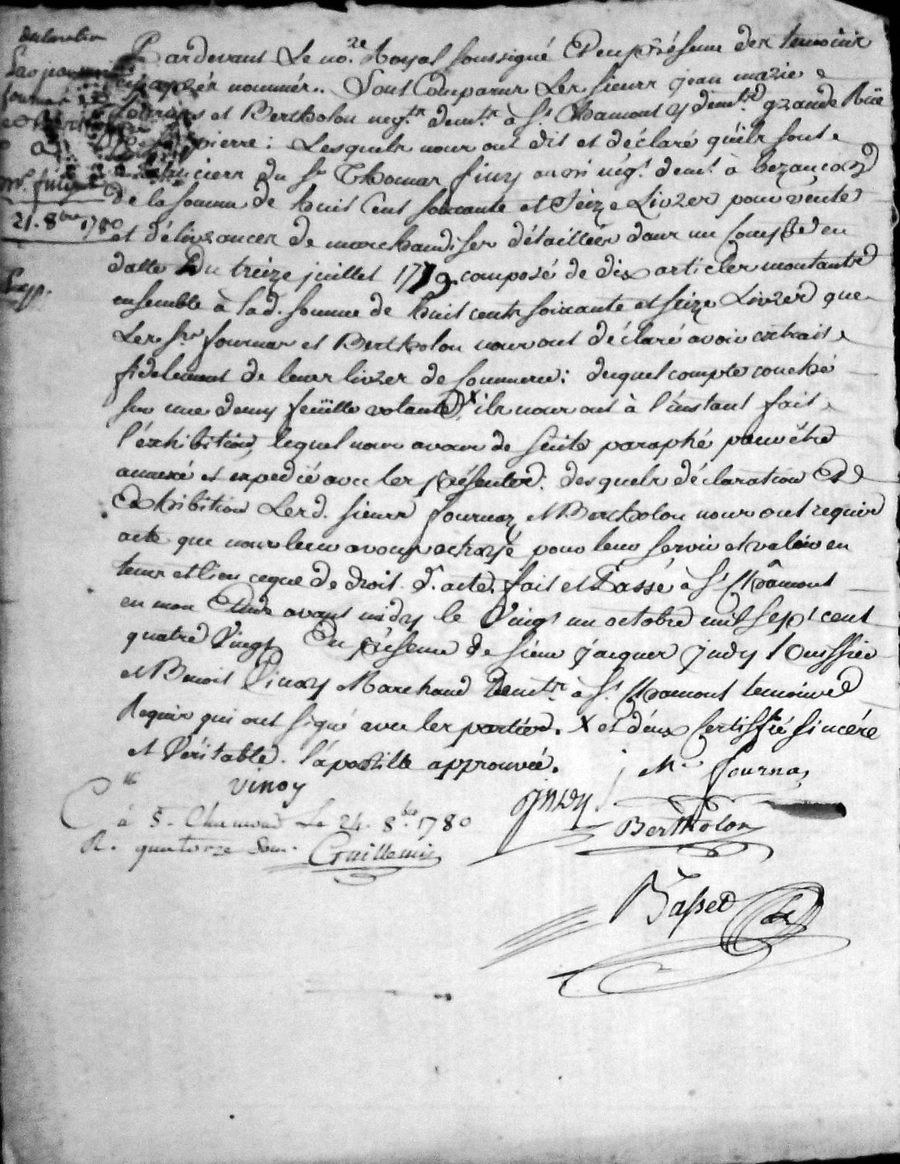 declaration
par
fournas
a
mr.
21. 8bre 1780
Exp.
Pardevant Le nore. Royal soussigné Et en présence des temoins
après nommés. Sont Comparus Les sieurs jean marie
et Bertholon negts. demts. à St. Chamond grande Rüe
pierre: Lesquels nous ont dit et déclaré qu'ils sont
créanciers du Sr. Thomas negt. demt. à bezançon
de la somme de huit Cent soixante et Seize Livres pour vente
et délivrances de marchandises détaillées dans un Compte en
datte Du treize juillet 1779. composé de dix articles montants
ensemble à lad. somme de huit cents soixante et seize Livres que
Les Srs. fournas et Bertholon nous ont déclaré avoir extrait
fidelement de leurs livres de Commerce; duquel compte couché
sur une demy feüille volante X ils nous ont à l'instant fait
l'exhibition, lequel nous avons de suite paraphé pour être
annexé et expedié avec les présentes. desquels déclaration Et
Exhibition Lesd. sieurs fournas et Bertholon nous ont requis
acte que nous leur avons octroyé pour leur servir et valoir en
tems et lieu ce que de droit. dt. acte, fait et Passé à St. Chamont
en mon Etude avant midy le Vingt un octobre mil sept cent
quatre Vingt En présence de sieur jacques judy huissier
et Benoit Vinoy Marchand demts. à St. Chamont temoins
Requis qui ont signé avec les parties. X et d'eux Certiffié sincére
et Véritable. l'apostille approuvée.
Mie. fournas
vinoy
judy
Bertholon
Clé
à S. Chamond Le 24. 8bre 1780
R. quatorze sous. Guillemin
Basset